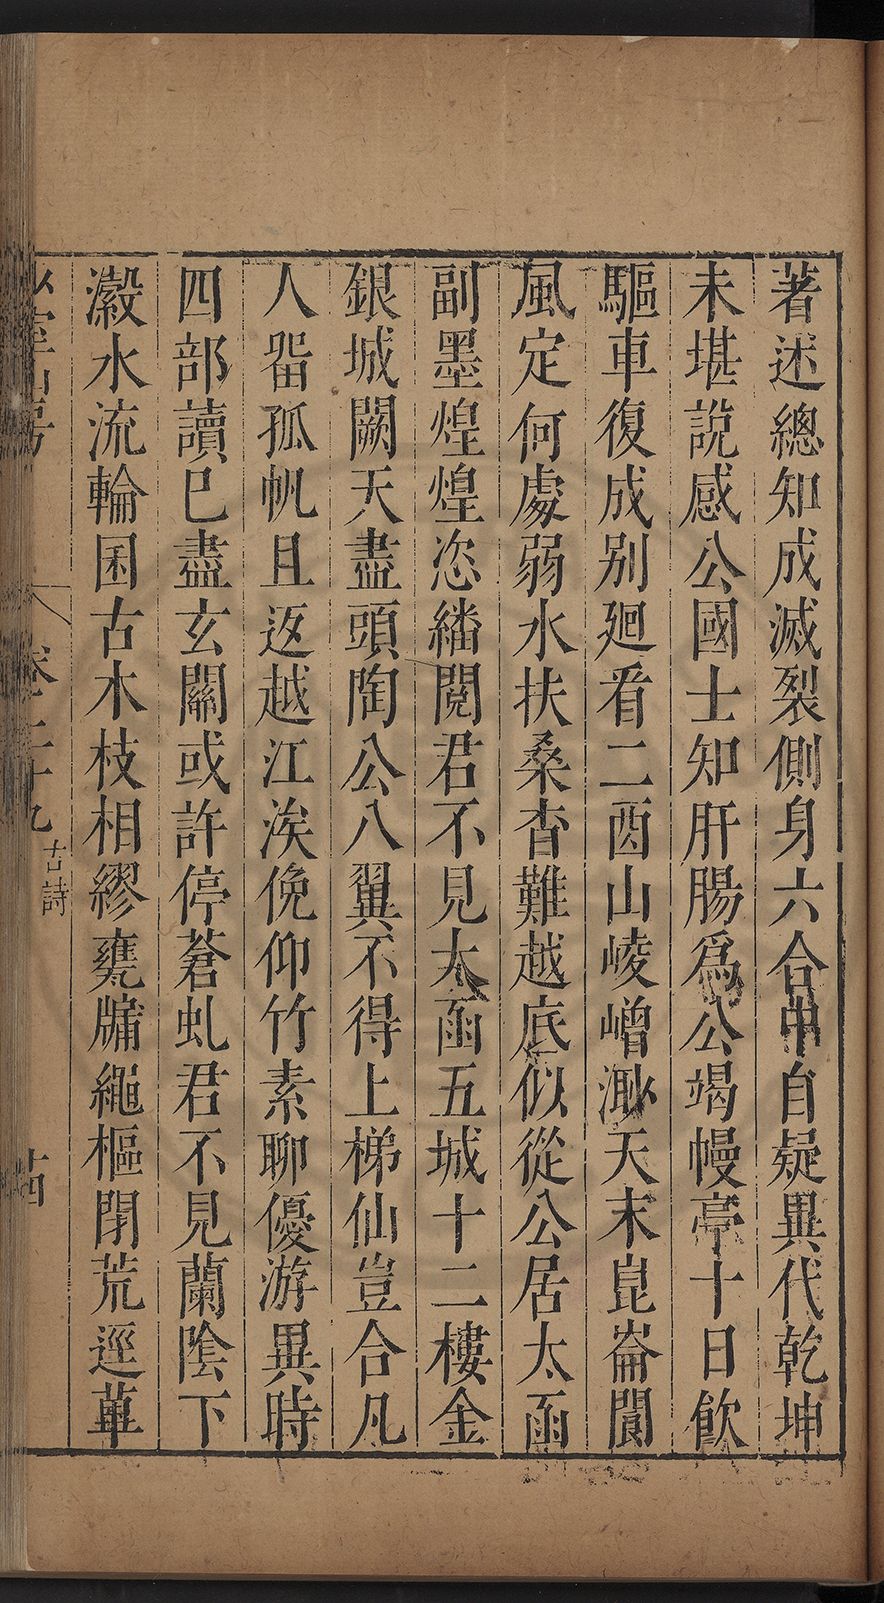 著述總知成滅裂側身六合中自疑異代乾坤
未堪說感公國士知肝腸為公竭幔亭十日飲
驅車復成别廻看二酉山崚嶒渺天末崑崙閬
風定何處弱水扶桑杳難越底似從公居太函
副墨煌煌恣繙閱君不見太函五城十二樓金
銀城闕天盡頭陶公八翼不得上梯仙豈合凡
人畱孤帆且返越江涘俛仰竹素聊優游異時
四部讀巳盡玄關或許停蒼虬君不見蘭陰下
瀫水流輪囷古木枝相繆甕牖繩樞閉荒逕華
山房 卷二十九 古詩 十四